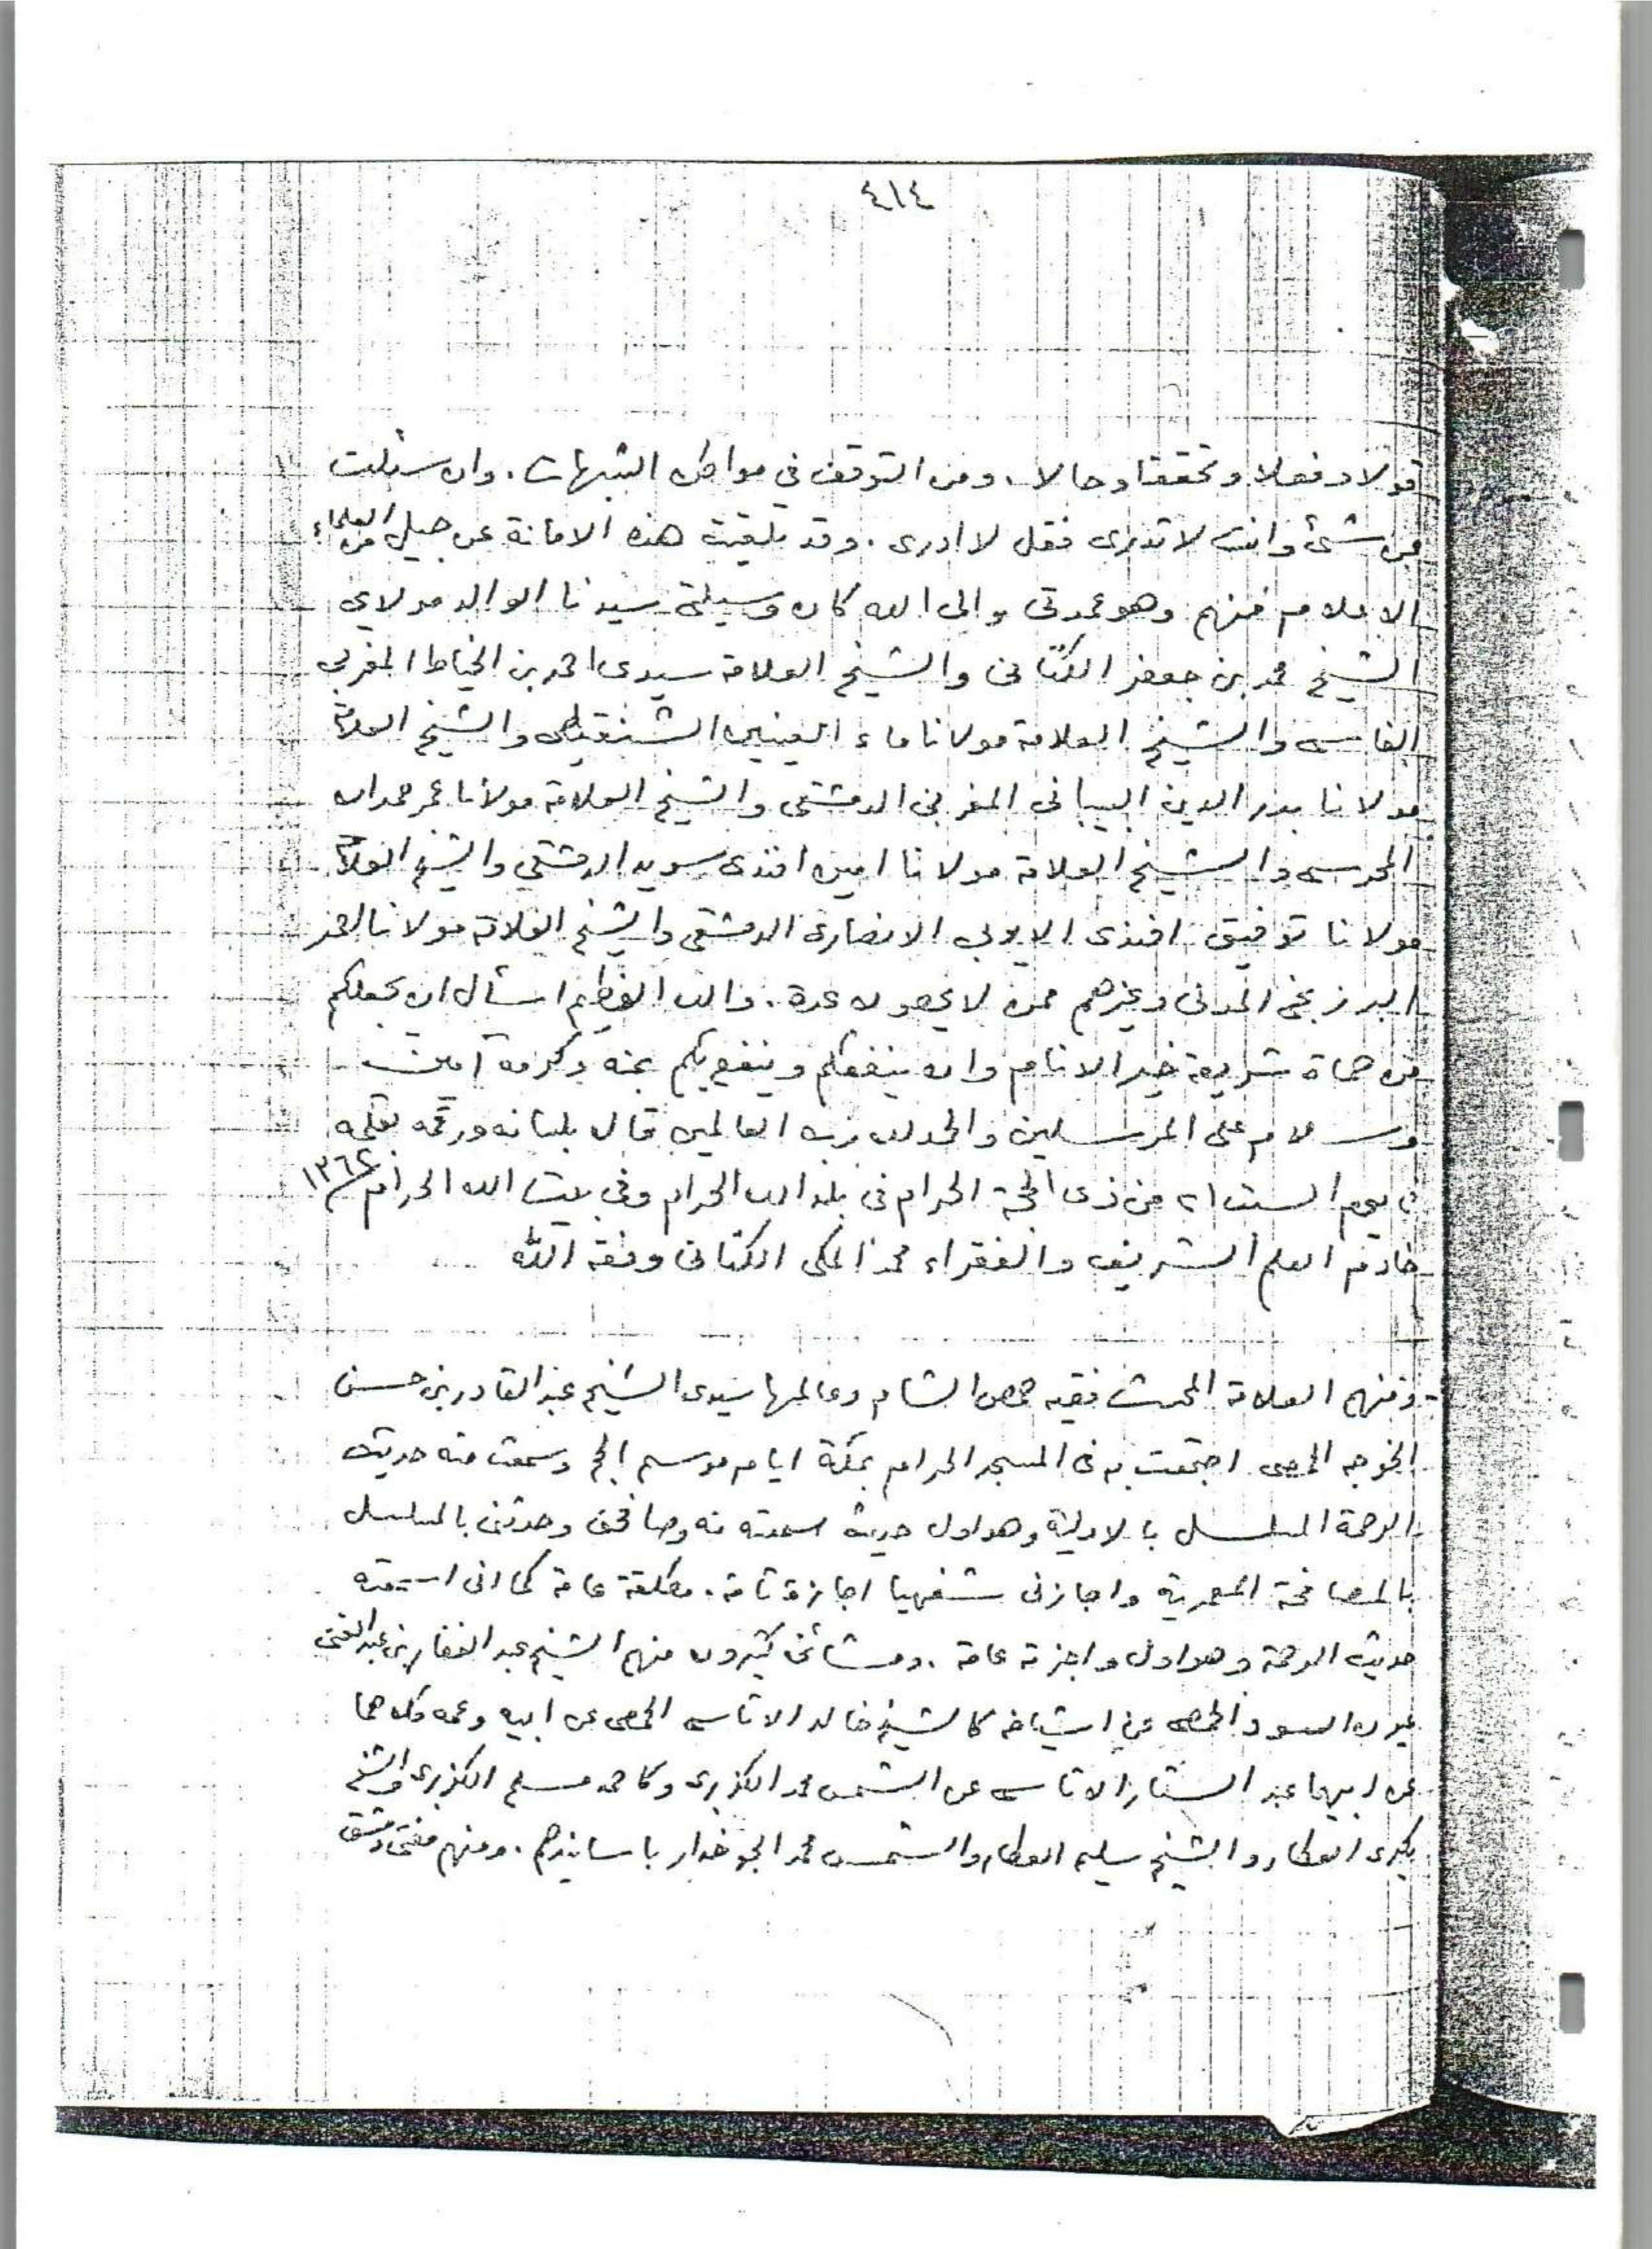 ٤١٤
قولا وفعلا وتحققا وحالا . ومن التوقف في مواطن الشبهات . وان سئلت
عن شئ وانت لا تدرى فقل لا ادرى . وقد تلقيت هذه الامانة عن جيل من العلماء
الاعلام فمنهم وهو عمدتى والى الله كان وسيلتى سيدنا الوالد مولاي
الشيخ محمد بن جعفر الكتانى والشيخ العلامة سيدى احمد بن الخياط المغربي
الفاسى والشيخ العلامة مولانا ماء العينين الشنقيطى والشيخ العلامة
مولانا بدر الدين البيبانى المغربى الدمشقى والشيخ العلامة مولانا عمر حمدان
المحرسى والشيخ العلامة مولانا امين افندى سويد الدمشقي والشيخ العلامة
مولانا توفيق افندى الايوبي الانصارى الدمشقى والشيخ العلامة مولانا
البرزنجى المدنى وغيرهم ممن لا يحصون عدة . والله العظيم اسأل ان يجعلكم
من حماة شريعة خير الانام وان ينفعكم وينفع بكم بمنه وكرمه آمين
وسلام على المرسلين والحمد لله رب العالمين قال بلسانه ورقمه بقلمه
يوم السبت ٢١ من ذى الحجة الحرام فى بلد الله الحرام وفى بيت الله الحرام
خادم العلم الشريف والفقراء محمد المكى الكتانى وفقه الله
- ومنهم العلامة المحدث فقيه حمص الشام وعالمها سيدى الشيخ عبد القادر بن حسن
الخوجه الحمصى اجتمعت به فى المسجد الحرام بمكة ايام موسم الحج وسمعت منه حديث
الرحمة المسلسل بالاولية وهو اول حديث سمعته منه وصافحنى وحدثنى بالمسلسل
بالمصافحة المعمرية واجازنى شفهيا اجازة تامة . مطلقة عامة كما انى اسمعته
حديث الرحمة وهو اول واجزته عامة . ومشائخى كثيرون منهم الشيخ عبد الغفار بن عبد الغنى
عيون السود الحمصى عن اشياخه كالشيخ خالد الاتاسى الحمصى عن ابيه وعمه كلاهما
عن ابيهما عبد الستار الاتاسى عن الشمس محمد الكزبرى وكاحمد مسلم الكزبرى والشيخ
بكرى العطار والشيخ سليم العطار والشمس محمد الجوخدار باسانيدهم . ومنهم مفتى دمشق